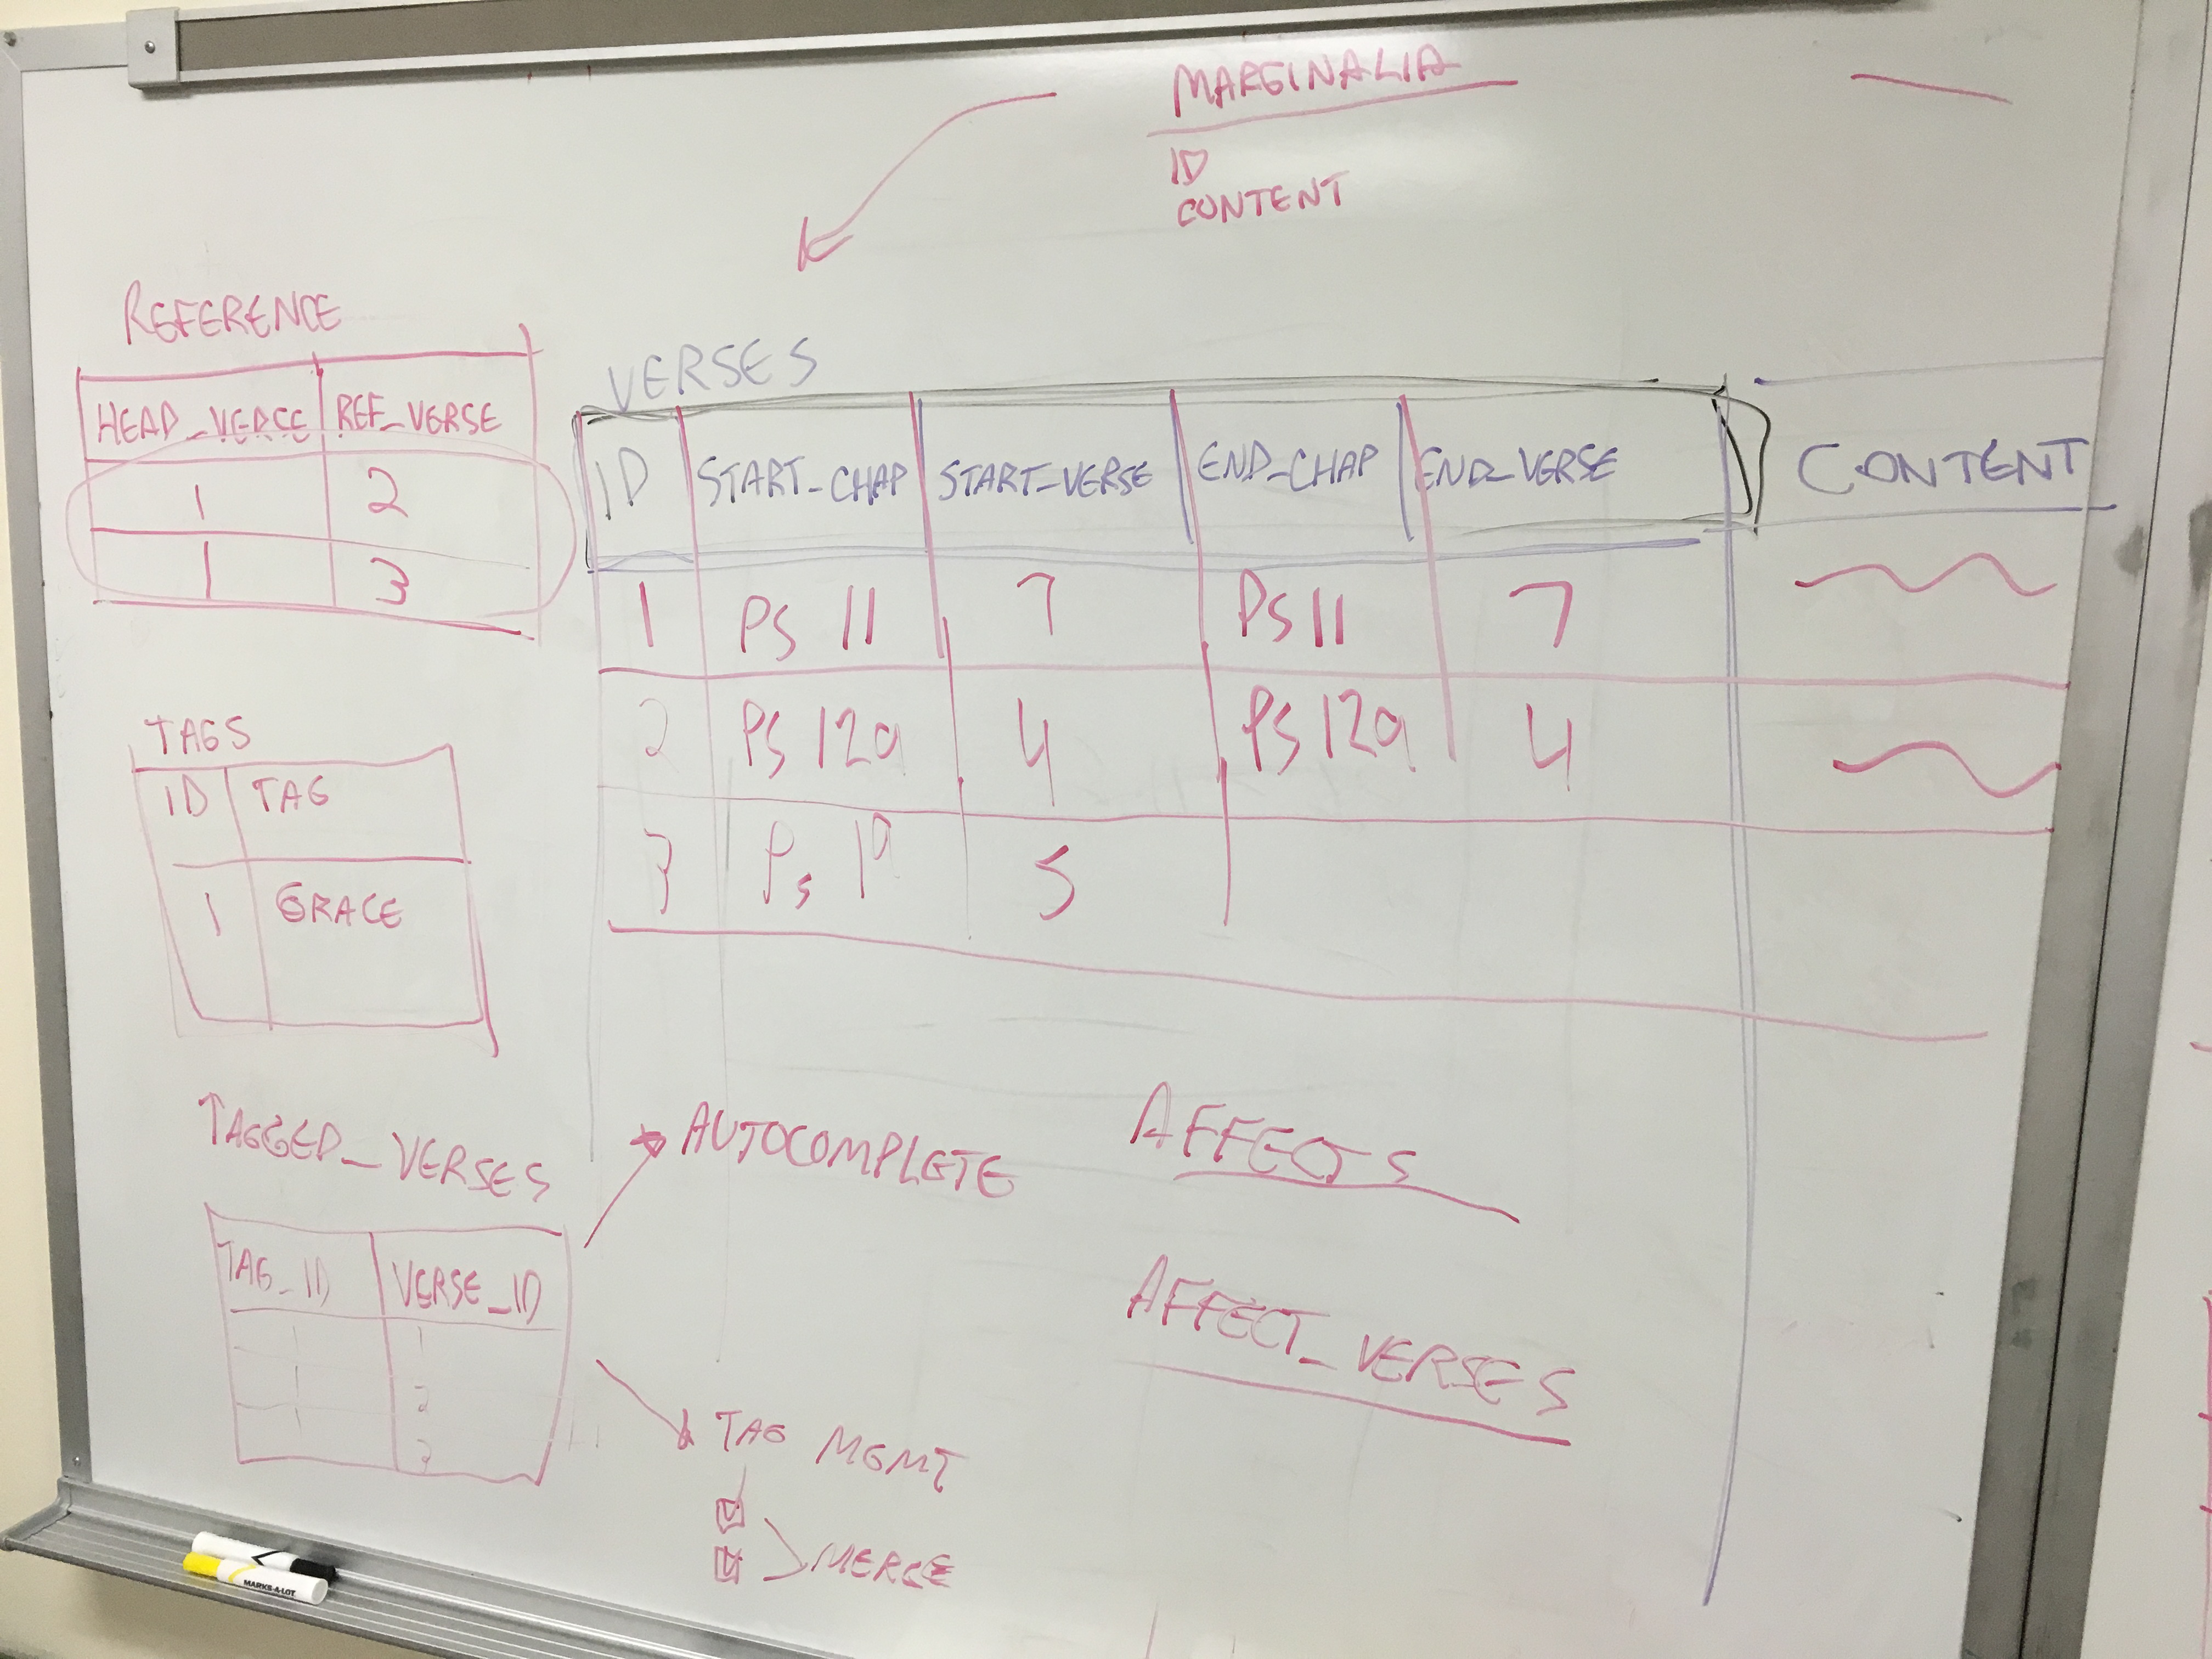 MARGINALIA
ID
CONTENT
REFERENCE
HEAD_VERSE REF_VERSE
1 2
1 3
VERSES
ID START_CHAP START_VERSE END_CHAP END_VERSE CONTENT
1 PS 11 7 PS 11 7
2 PS 129 4 PS 129 4
3 Ps 19 5
TAGS
ID TAG
1 GRACE
TAGGED_VERSES
TAG_ID VERSE_ID
1 1
1 2
1 3
AUTOCOMPLETE
TAG MGMT
MERGE
AFFECTS
AFFECT_VERSES
MARKS-A-LOT